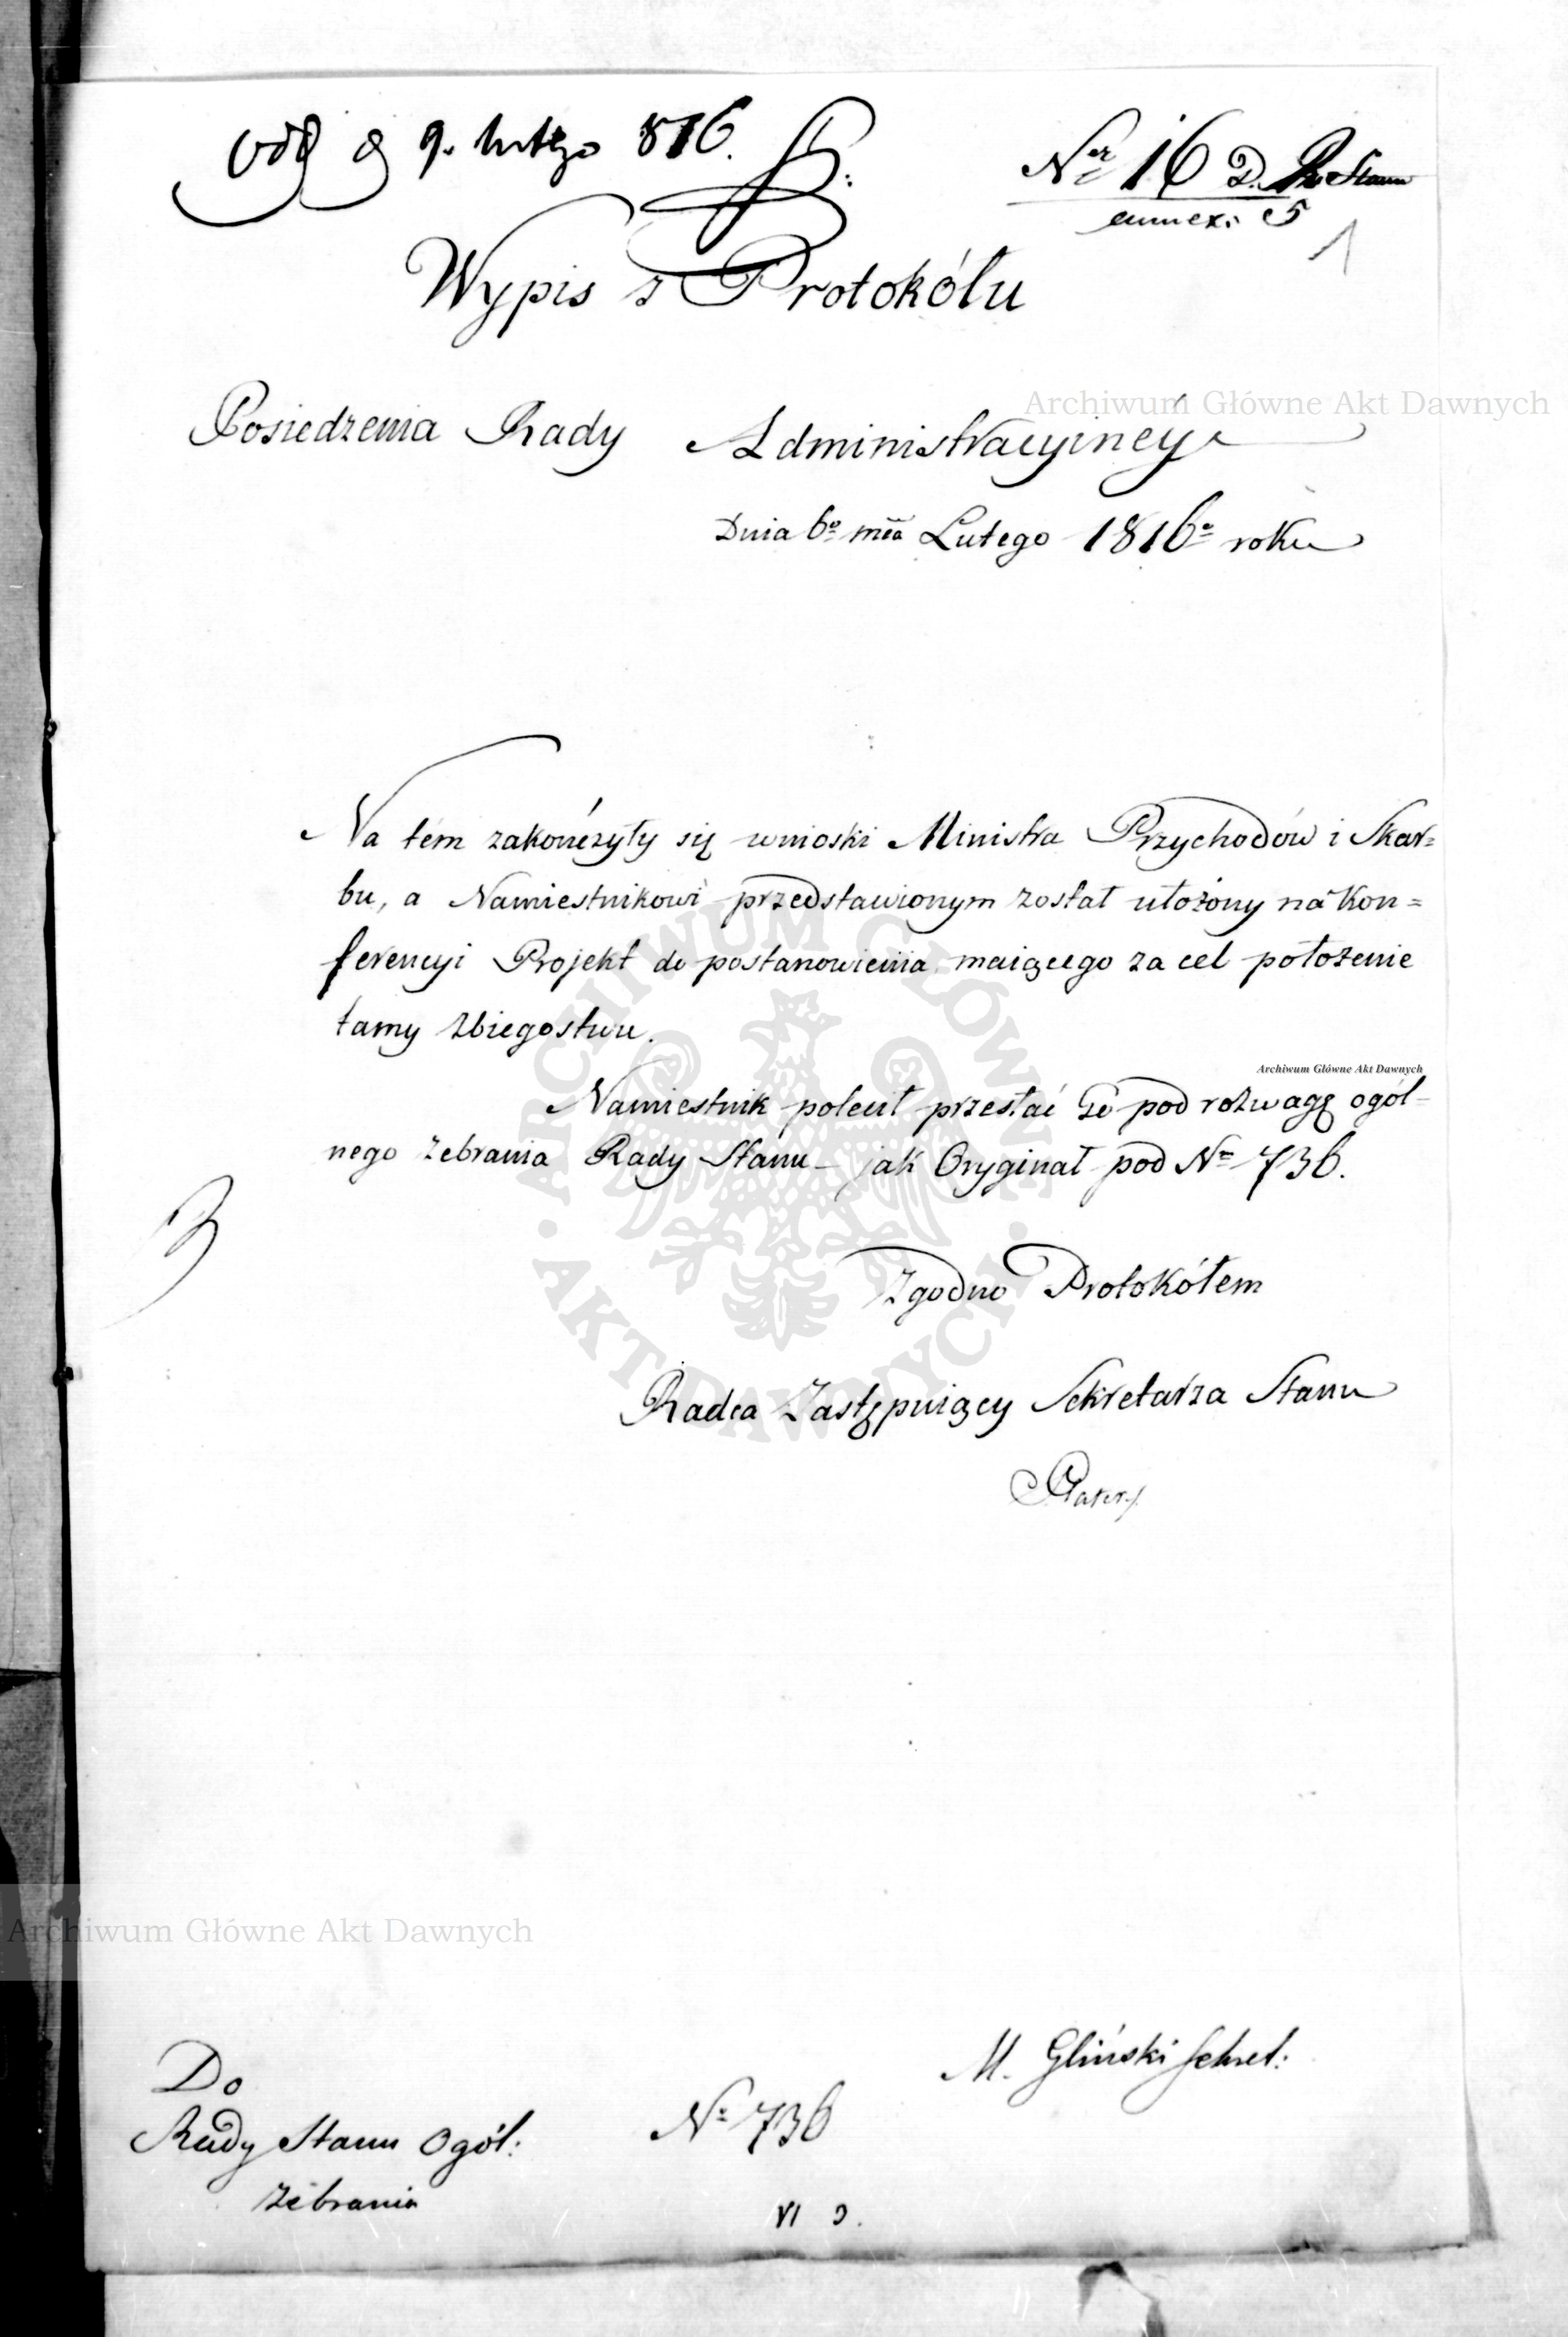 odd d 9. lutego 816.
Ner 16 D. R. Stanu
annex: 5
1
Wypis z Protokółu
Posiedzenia Rady Administracyiney
Dnia 6o mca Lutego 1816o roku
Archiwum Główne Akt Dawnych
Na tém zakończyły się wnioski Ministra Przychodów i Skar=
bu, a Namiestnikowi przedstawionym został ułożony na Kon=
ferencyi Projekt do postanowienia maiącego za cel położenie
tamy zbiegostwu.
Archiwum Główne Akt Dawnych
Namiestnik polecił przesłać Go pod rozwagę ogól-
nego zebrania Rady Stanu – jak Oryginał pod No 736.
ARCHIWUM GŁÓWNE • AKT DAWNYCH •
Zgodno Protokółem
Radca Zastępuiący Sekretarza Stanu
Plater
Archiwum Główne Akt Dawnych
M. Gliński Sekret:
Do
Rady Stanu Ogól:
zebrania
No 736
VI